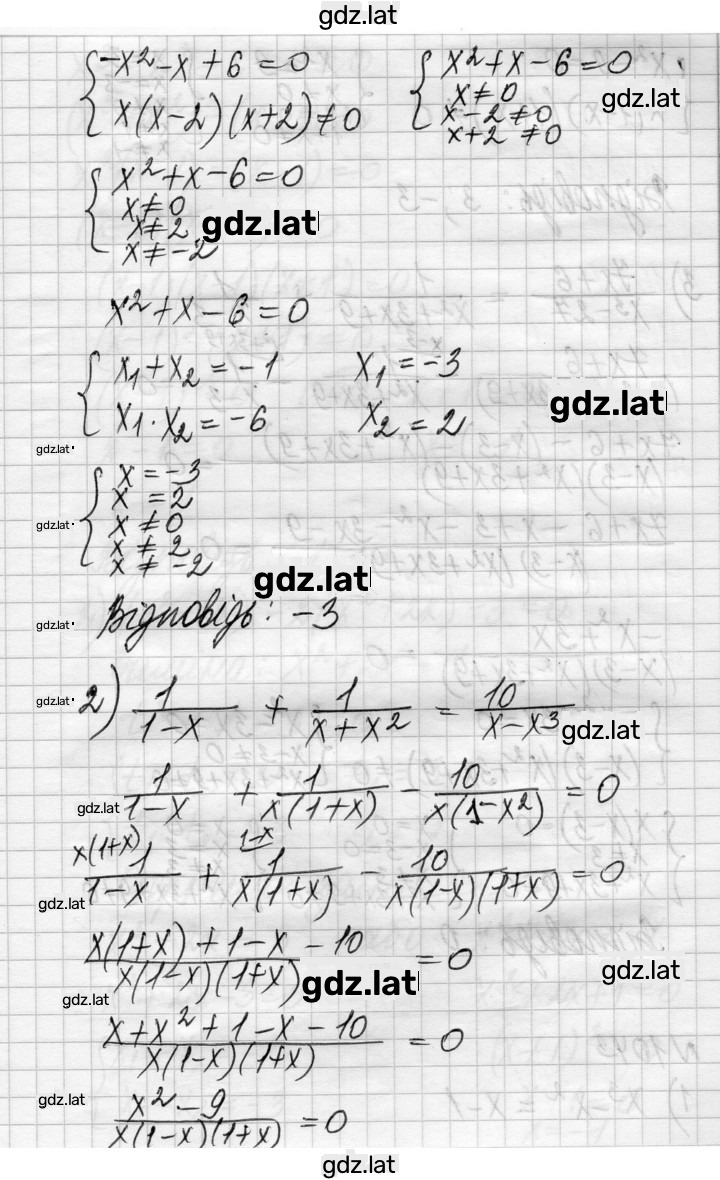 gdz.lat
{ -x² - x + 6 = 0
x(x-2)(x+2) ≠ 0
{ x² + x - 6 = 0
x ≠ 0
x - 2 ≠ 0
x + 2 ≠ 0
gdz.lat
{ x² + x - 6 = 0
x ≠ 0
x ≠ 2
x ≠ -2
gdz.lat
x² + x - 6 = 0
{ x₁ + x₂ = -1
x₁ · x₂ = -6
x₁ = -3
x₂ = 2
gdz.lat
gdz.lat
{ x = -3
x = 2
x ≠ 0
x ≠ 2
x ≠ -2
gdz.lat
gdz.lat
Відповідь: -3
gdz.lat
2) 1/(1-x) + 1/(x+x²) = 10/(x-x³)
gdz.lat
gdz.lat
1/(1-x) + 1/(x(1+x)) - 10/(x(1-x²)) = 0
gdz.lat
x(1+x) 1-x
1/(1-x) + 1/(x(1+x)) - 10/(x(1-x)(1+x)) = 0
gdz.lat
(x(1+x) + 1 - x - 10)/(x(1-x)(1+x)) = 0
gdz.lat
gdz.lat
gdz.lat
(x + x² + 1 - x - 10)/(x(1-x)(1+x)) = 0
gdz.lat
(x² - 9)/(x(1-x)(1+x)) = 0
gdz.lat